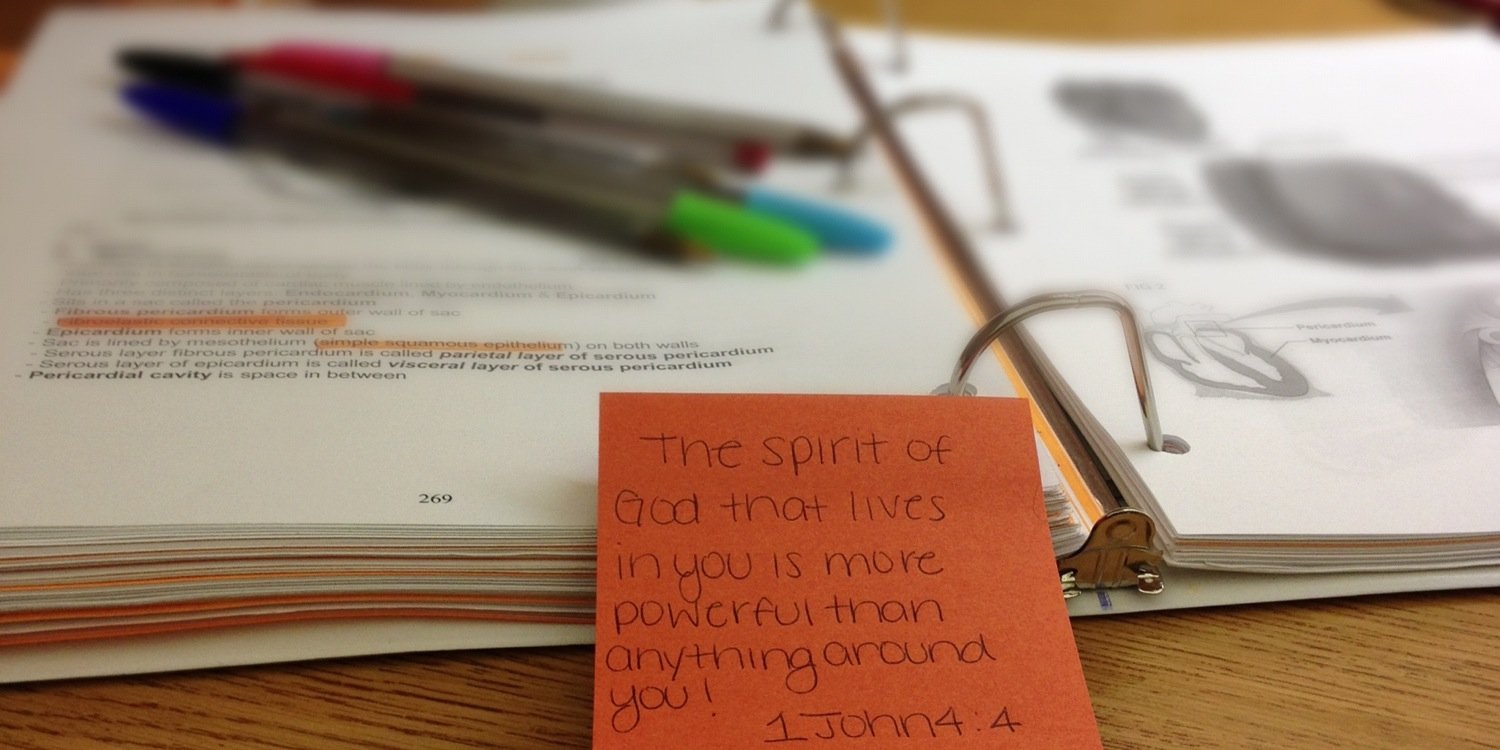 - Has three distinct layers: Endocardium, Myocardium & Epicardium
- Sits in a sac called the pericardium
- Fibrous pericardium forms outer wall of sac
fibroelastic connective tissue
- Epicardium forms inner wall of sac
- Sac is lined by mesothelium (simple squamous epithelium) on both walls
- Serous layer fibrous pericardium is called parietal layer of serous pericardium
- Serous layer of epicardium is called visceral layer of serous pericardium
- Pericardial cavity is space in between
269
FIG 2
Pericardium
Myocardium
The spirit of
God that lives
in you is more
powerful than
anything around
you!
1 John 4:4